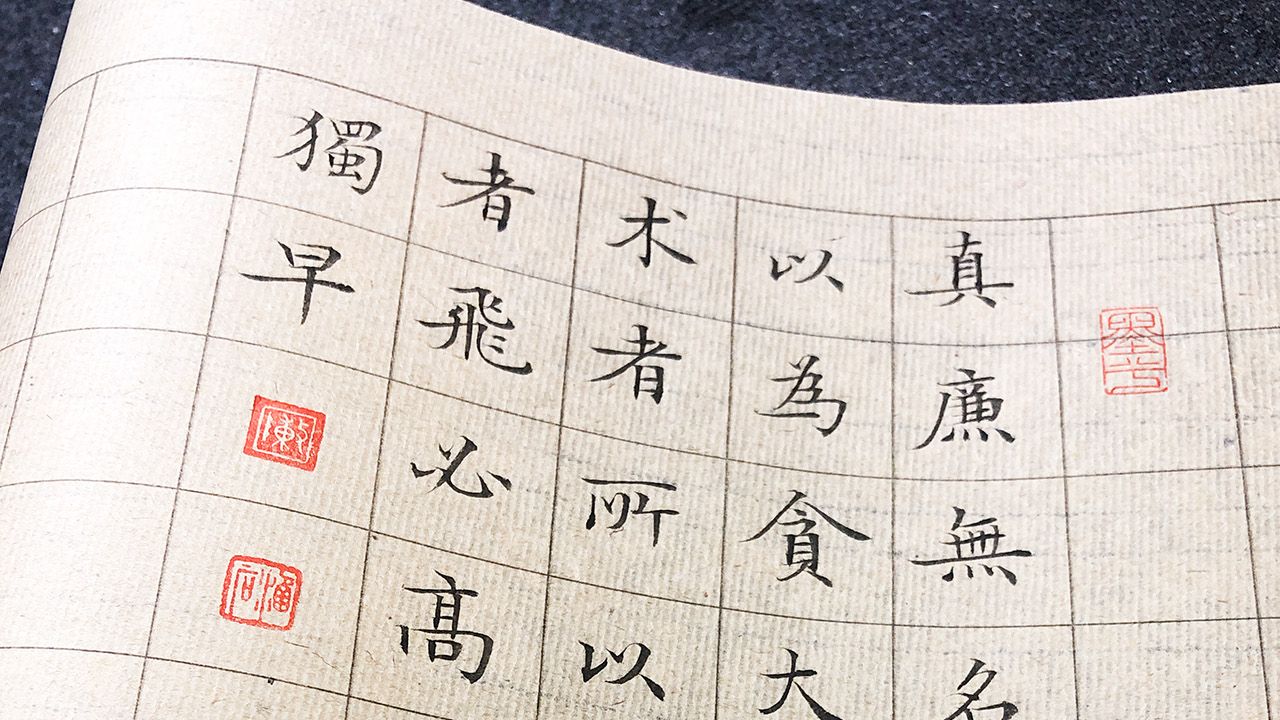 真廉無名
以為貪大
术者所以
者飛必高
獨早